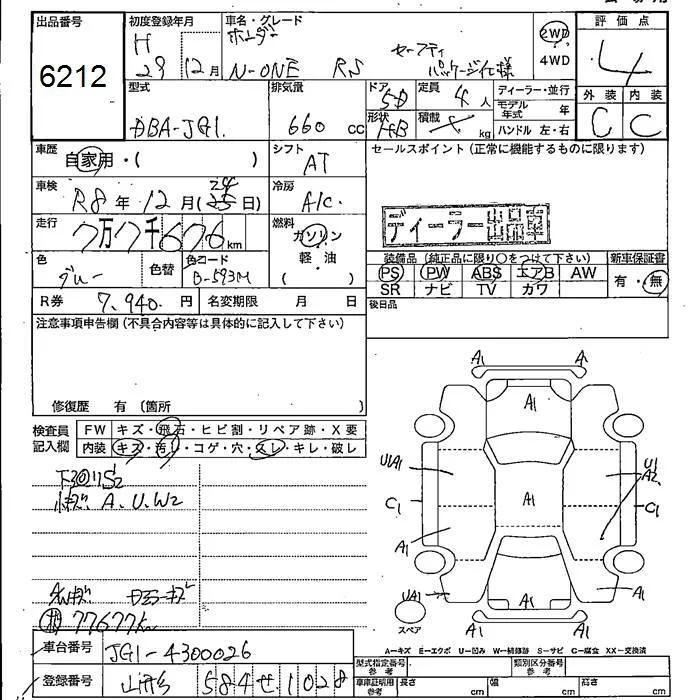 出品番号
6212
初度登録年月
H
29 12月
車名・グレード
ホンダ
N-ONE RS セーフティ
パッケージ仕様
2WD
4WD
評価点
4
外装 内装
C C
型式
DBA-JG1.
排気量
660 cc
ドア 5D
定員 4人
形状 HB
積載 kg
ディーラー・並行
モデル年式 年
ハンドル 左・右
車歴
自家用・( )
シフト
AT
車検
R8年12月(25日)
冷房
A/C.
走行
7万7千676km
燃料
ガソリン
軽・油
( )
色
グレー
色替
色コード
B-593M
R券 7,940.円
名変期限 月 日
セールスポイント(正常に機能するものに限ります)
ディーラー出品車
装備品(純正品に限り○をつけて下さい)
PS PW ABS エアB AW
SR ナビ TV カワ
新車保証書
有・無
後日品
注意事項申告欄(不具合内容等は具体的に記入して下さい)
修復歴 有(箇所 )
検査員
記入欄
FW キズ・飛石・ヒビ割・リペア跡・X要
内装 キズ・汚れ・コゲ・穴・スレ・キレ・破レ
小キズ A.U.W2
77677km
A1 A1
A1
UA1
U1
A2
C1
A1
C1
A1
UA1
A1
A1
A1 A1
スペア
A=キズ E=エクボ U=凹み W=補修跡 S=サビ C=腐食 XX=交換済
車台番号 JG1-4300026
登録番号 山形 584 せ 1028
型式指定番号
参考
類別区分番号
参考
車庫証明用
参考
長さ cm
幅 cm
高さ cm